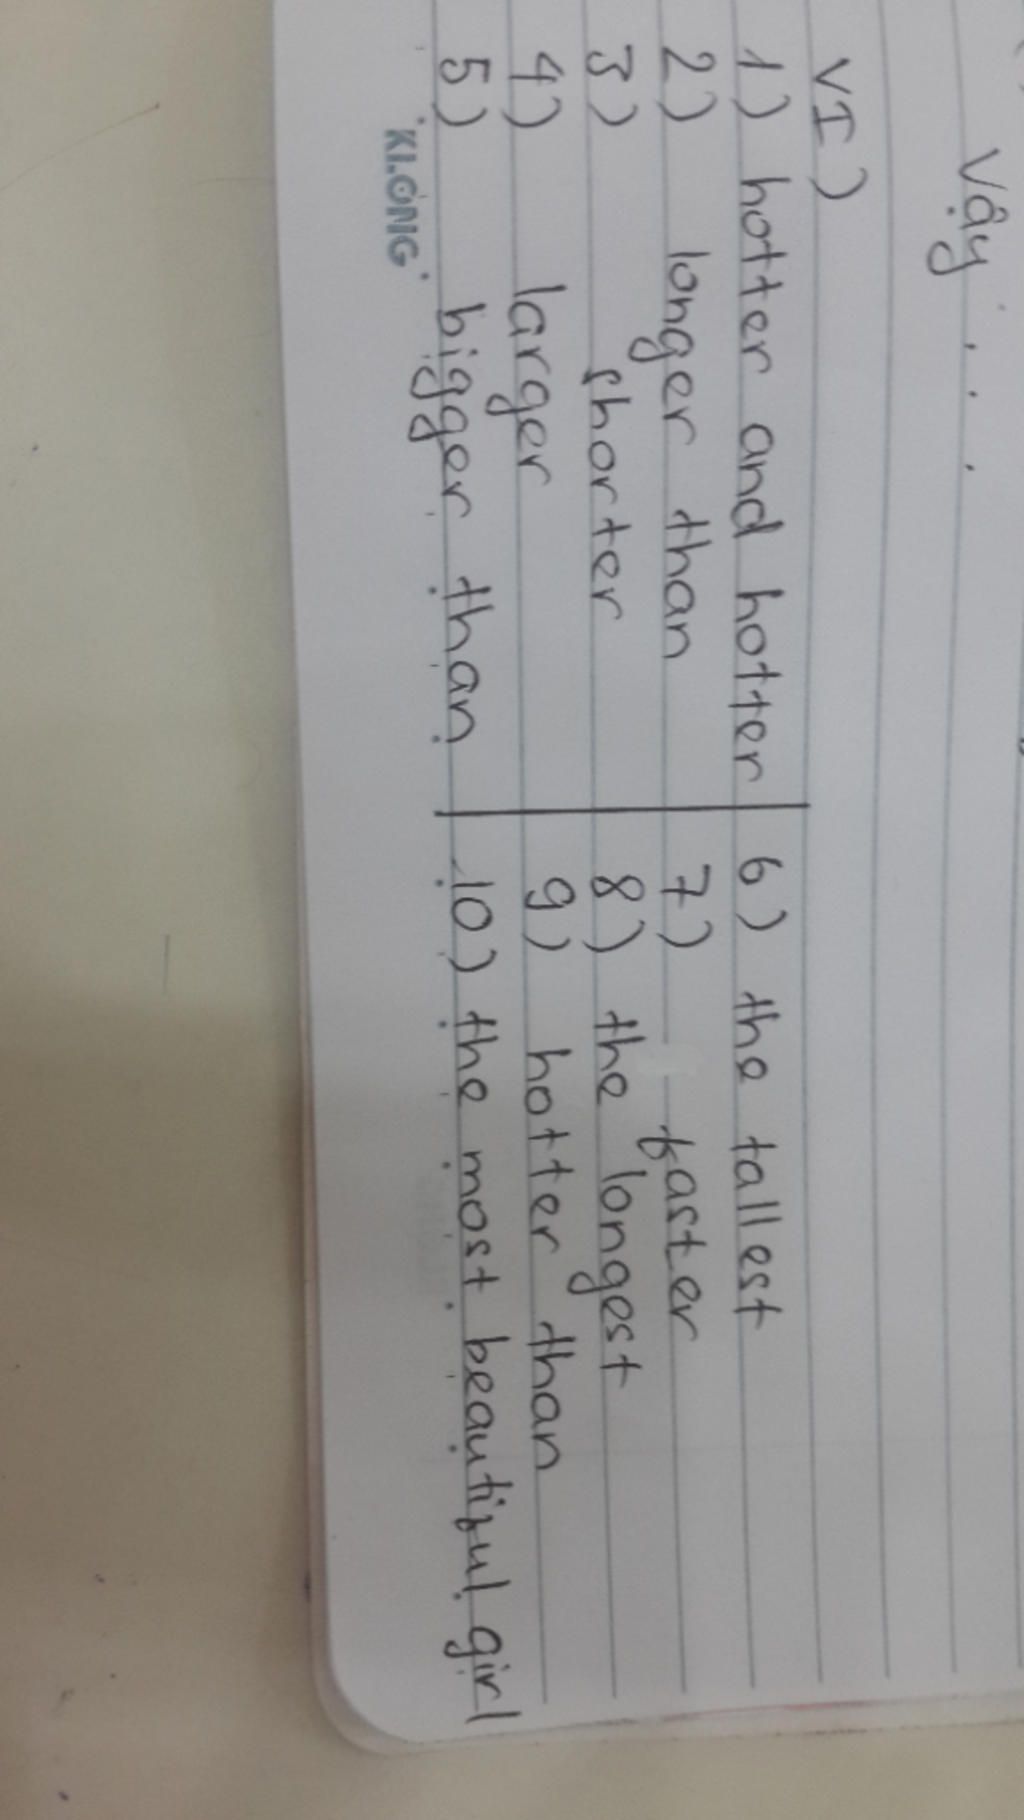 Vậy . . .
VI)
1) hotter and hotter
2) longer than
3) shorter
4) larger
5) bigger than
6) the tallest
7) faster
8) the longest
9) hotter than
10) the most beautiful girl
KLONG